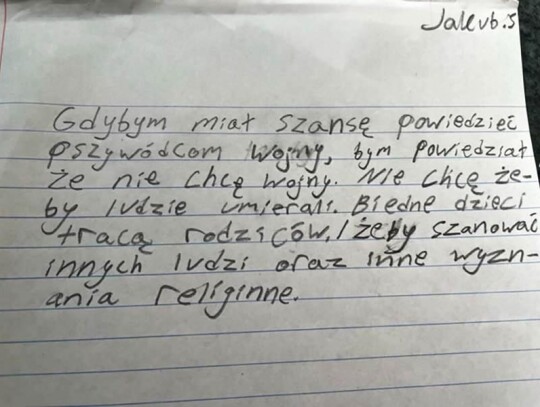 Jakub.S
Gdybym miał szansę powiedzieć
pszywódcom wojny, bym powiedział
że nie chcę wojny. Nie chcę że-
by ludzie umierali. Biedne dzieci
tracą rodziców. I żeby szanować
innych ludzi oraz inne wyzn-
ania religinne.